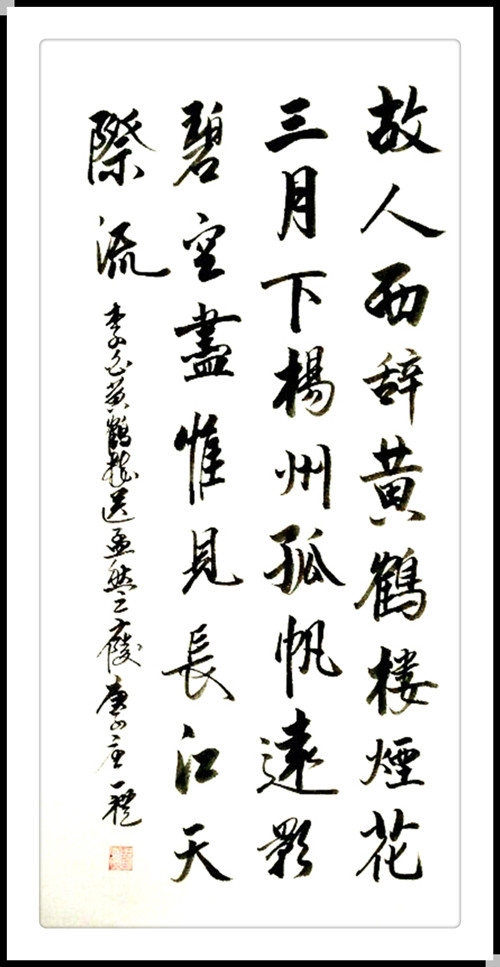 故人西辞黄鶴楼煙花
三月下楊州孤帆遠影
碧空盡惟見長江天
際流
李白黄鶴楼送孟浩然之廣陵